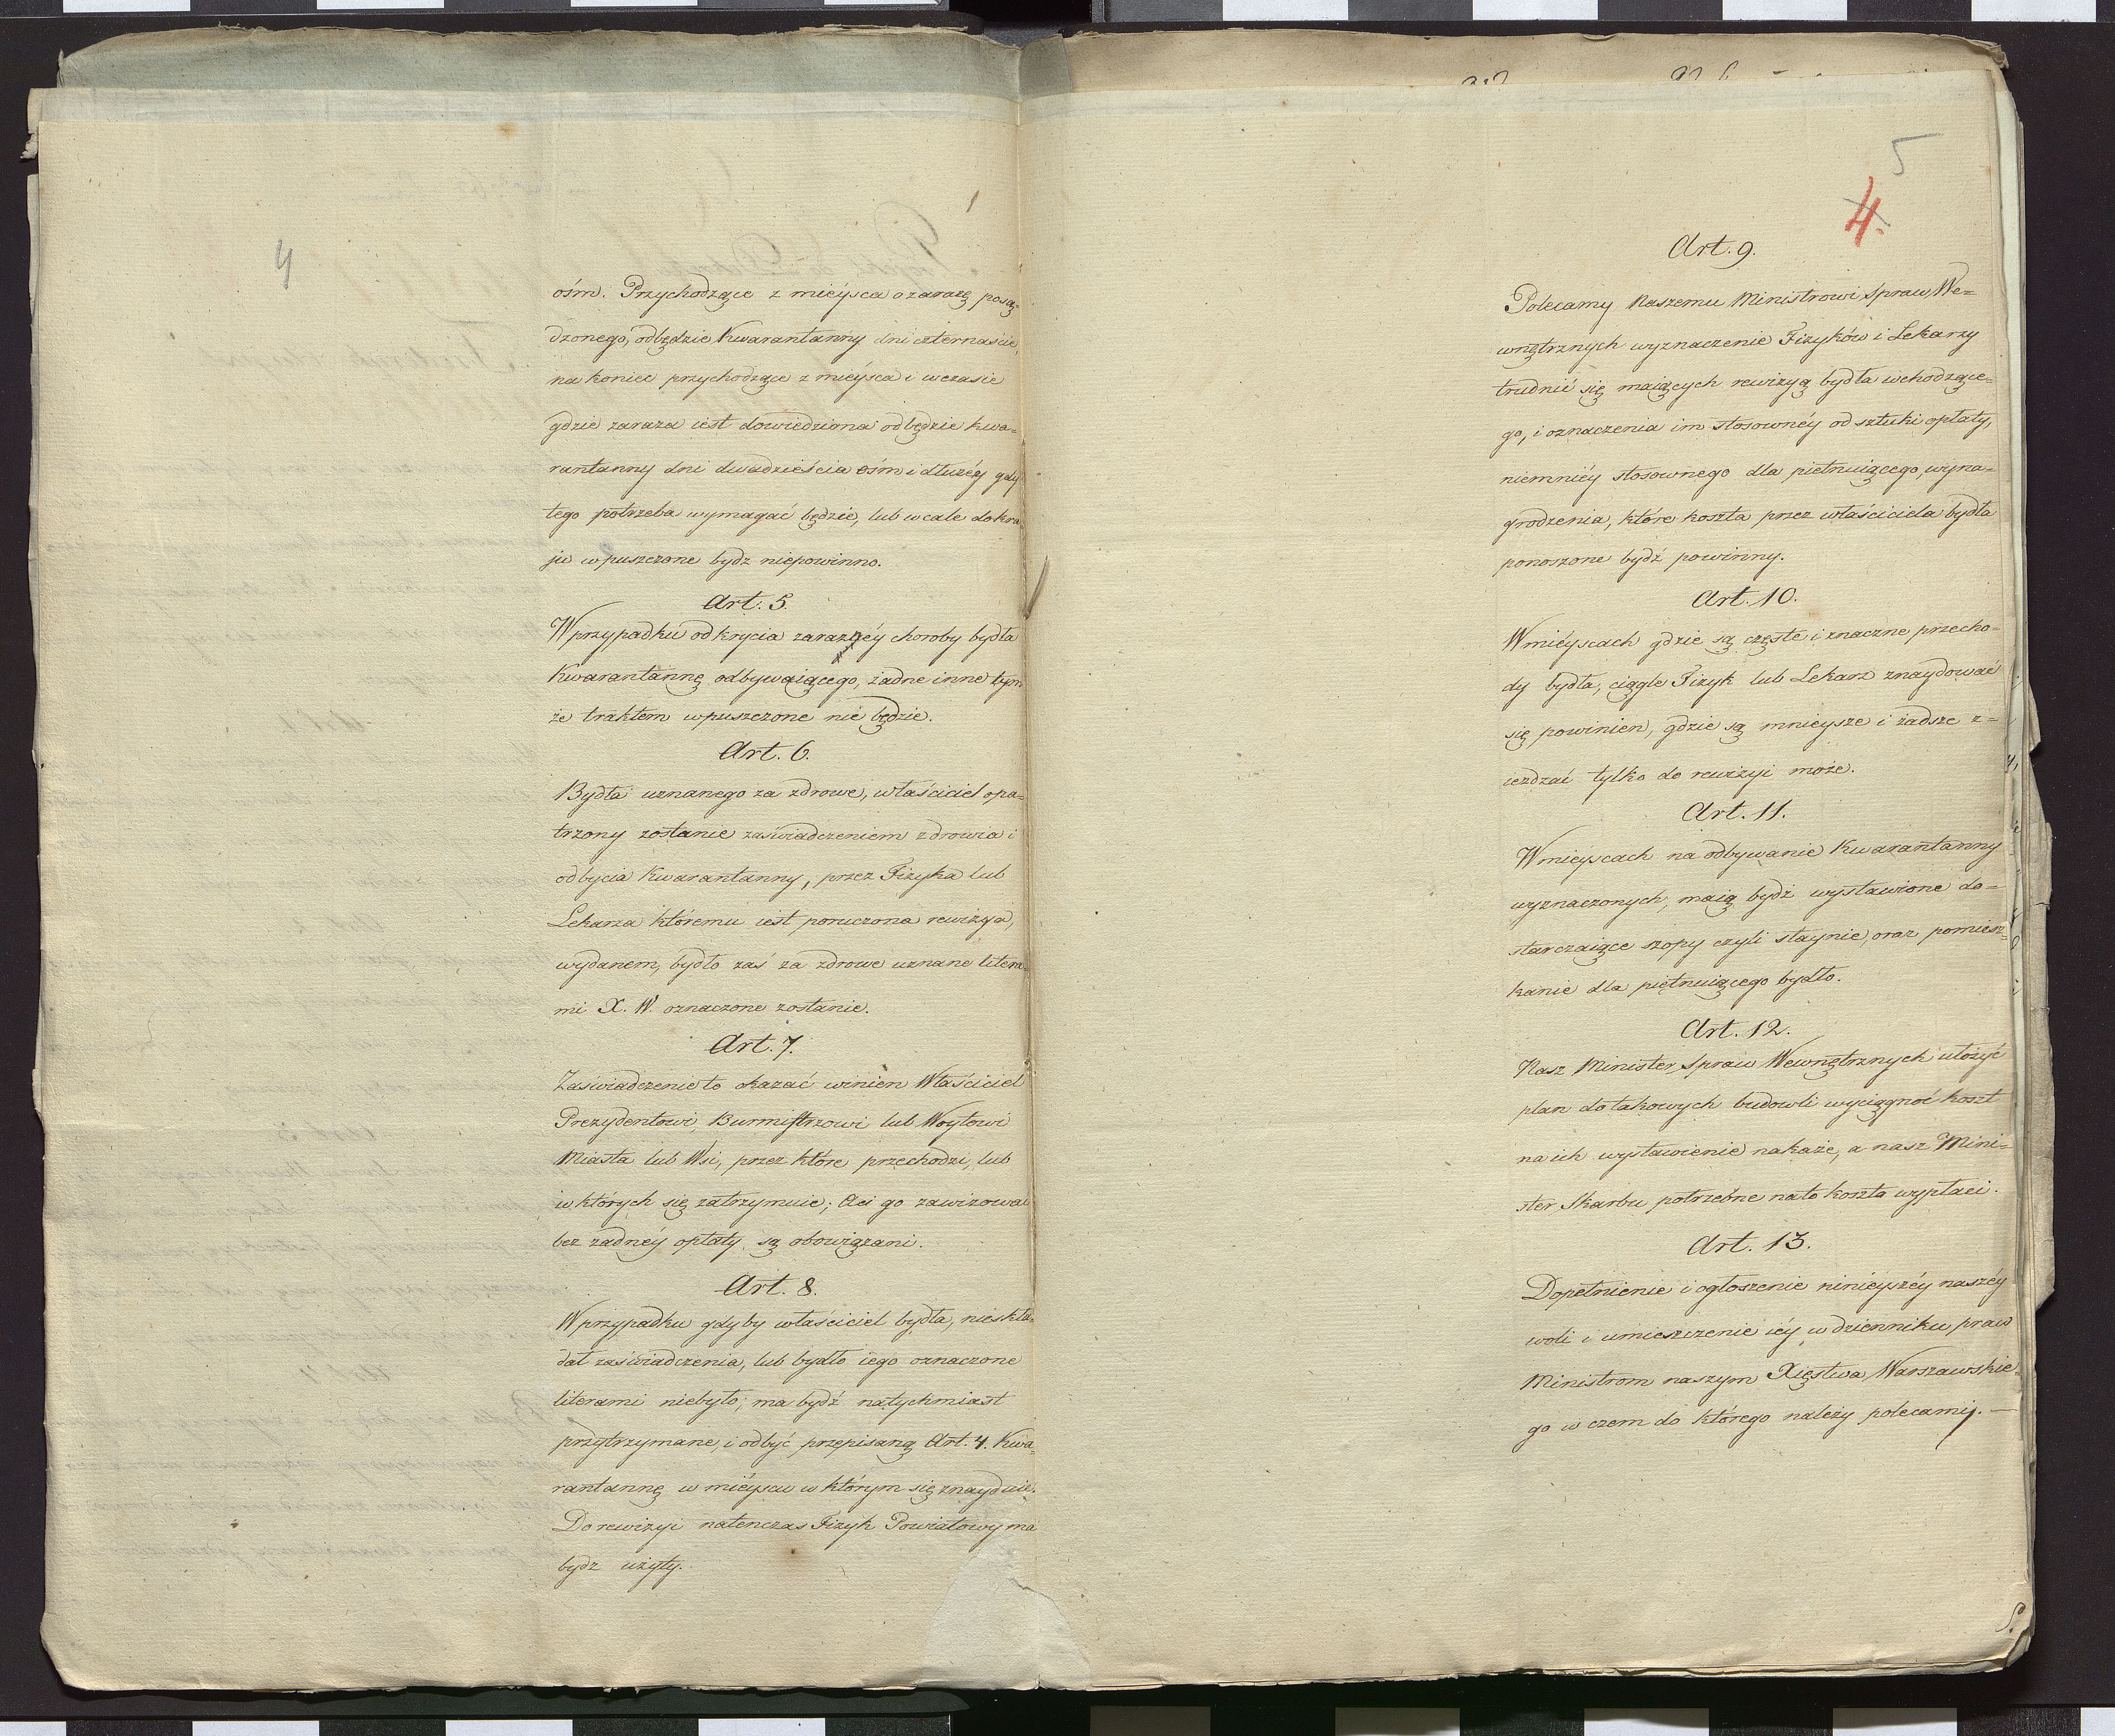 4
ośm. Przychodzące z mieysca o zarazę posą-
dzonego, odbędzie Kwarantanny dni czternaście,
na koniec przychodzące z mieysca i w czasie
gdzie zaraza iest dowiedziona odbędzie kwa-
rantanny dni dwadzieścia ośm i dłużéy gdy
tego potrzeba wymagać będzie, lub wcale do kra-
ju wpuszczone bydz niepowinno.
Art. 5.
W przypadku odkrycia zaraznéy choroby bydła
Kwarantannę odbywaiącego, żadne inne tym
że traktem wpuszczone nie będzie.
Art. 6.
Bydła uznanego za zdrowe, właściciel opa-
trzony zostanie zaświadczeniem zdrowia i
odbycia Kwarantanny, przez Fizyka lub
Lekarza któremu iest poruczona rewizya,
wydanem, bydło zaś za zdrowe uznane litera-
mi X. W. oznaczone zostanie.
Art. 7.
Zaświadczenie to okazać winien Właściciel
Prezydentowi, Burmistrzowi lub Woytowi
Miasta lub Wsi, przez które przechodzi, lub
w których się zatrzymuie; Ci go zawizować
bez żadnéy opłaty są obowiązani.
Art. 8.
W przypadku gdyby właściciel bydła, nieskła-
dał zaświadczenia, lub bydło iego oznaczone
literami niebyło; ma bydź natychmiast
przytrzymane, i odbyć przepisaną Art. 4. Kwa-
rantannę w mieyscu w którym się znayduie.
Do rewizyi natenczas Fizyk Powiatowy ma
bydz użyty.
5
4.
Art. 9.
Polecamy Naszemu Ministrowi Spraw We-
wnętrznych wyznaczenie Fizyków i Lekarzy
trudnić się maiących rewizyą bydła wchodzące-
go, i oznaczenia im stosownéy od sztuki opłaty,
niemniéy stosownego dla piętnuiącego, wyna-
grodzenia, które koszta przez właściciela bydła
ponoszone bydź powinny.
Art. 10.
W mieyscach gdzie są częste i znaczne przecho-
dy bydła, ciągle Fizyk lub Lekarz znaydować
się powinien, gdzie są mnieysze i żadsze z-
ieżdzać tylko do rewizyi może.
Art. 11.
W mieyscach na odbywanie Kwarantanny
wyznaczonych, maią bydź wystawione do-
starczaiące szopy czyli staynie, oraz pomiesz-
kanie dla piętnuiącego bydło.
Art. 12.
Nasz Minister Spraw Wewnętrznych ułożyć
plan do takowych budowli wyciągnąć koszt
na ich wystawienie nakaże, a nasz Mini-
ster Skarbu potrzebne na to koszta wypłaci.
Art. 13.
Dopełnienie i ogłoszenie ninieyszéy naszéy
woli i umieszczenie iéy w dzienniku praw
Ministrom naszym Xięstwa Warszawskie-
go w czem do którego należy polecamy. —